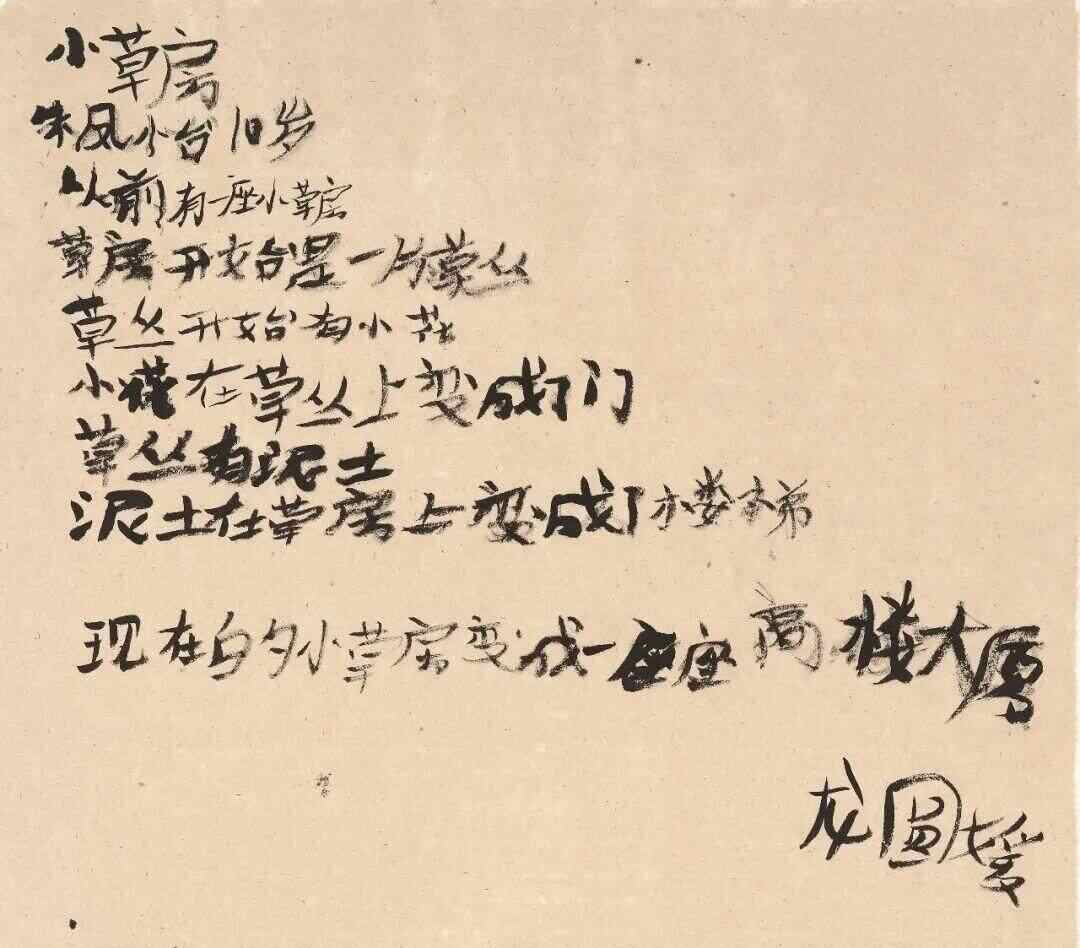 小草房
朱凤小台10岁
以前有一座小草房
草房开始是一片草丛
草丛开始有小花
小花在草丛上变成了门
草丛有泥土
泥土在草房上变成了楼梯
现在的小草房变成一座座高楼大厦
龙圆媛